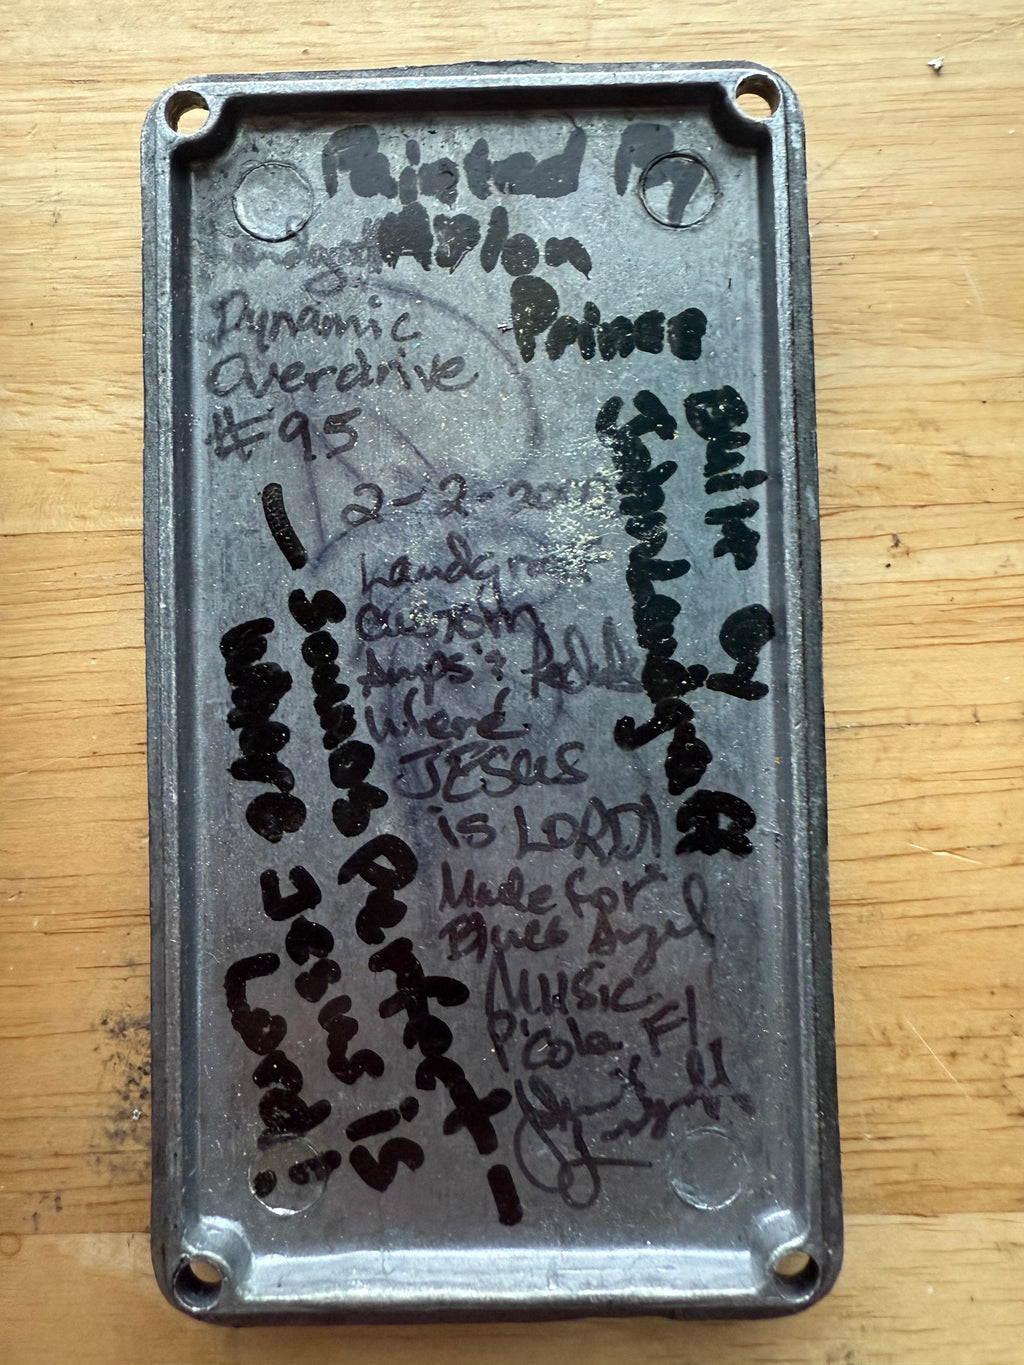 Painted By
Aplon
Prince
Dynamic
Overdrive
#95
2-2-
Landgraff
Custom
Amps & Pedals
Where
JESUS
is LORD!
Made for
Blues Angel
MUSIC
P'cola Fl
Built By
John Landgraff
- Sounds Perfect -
Where Jesus is
Lord!